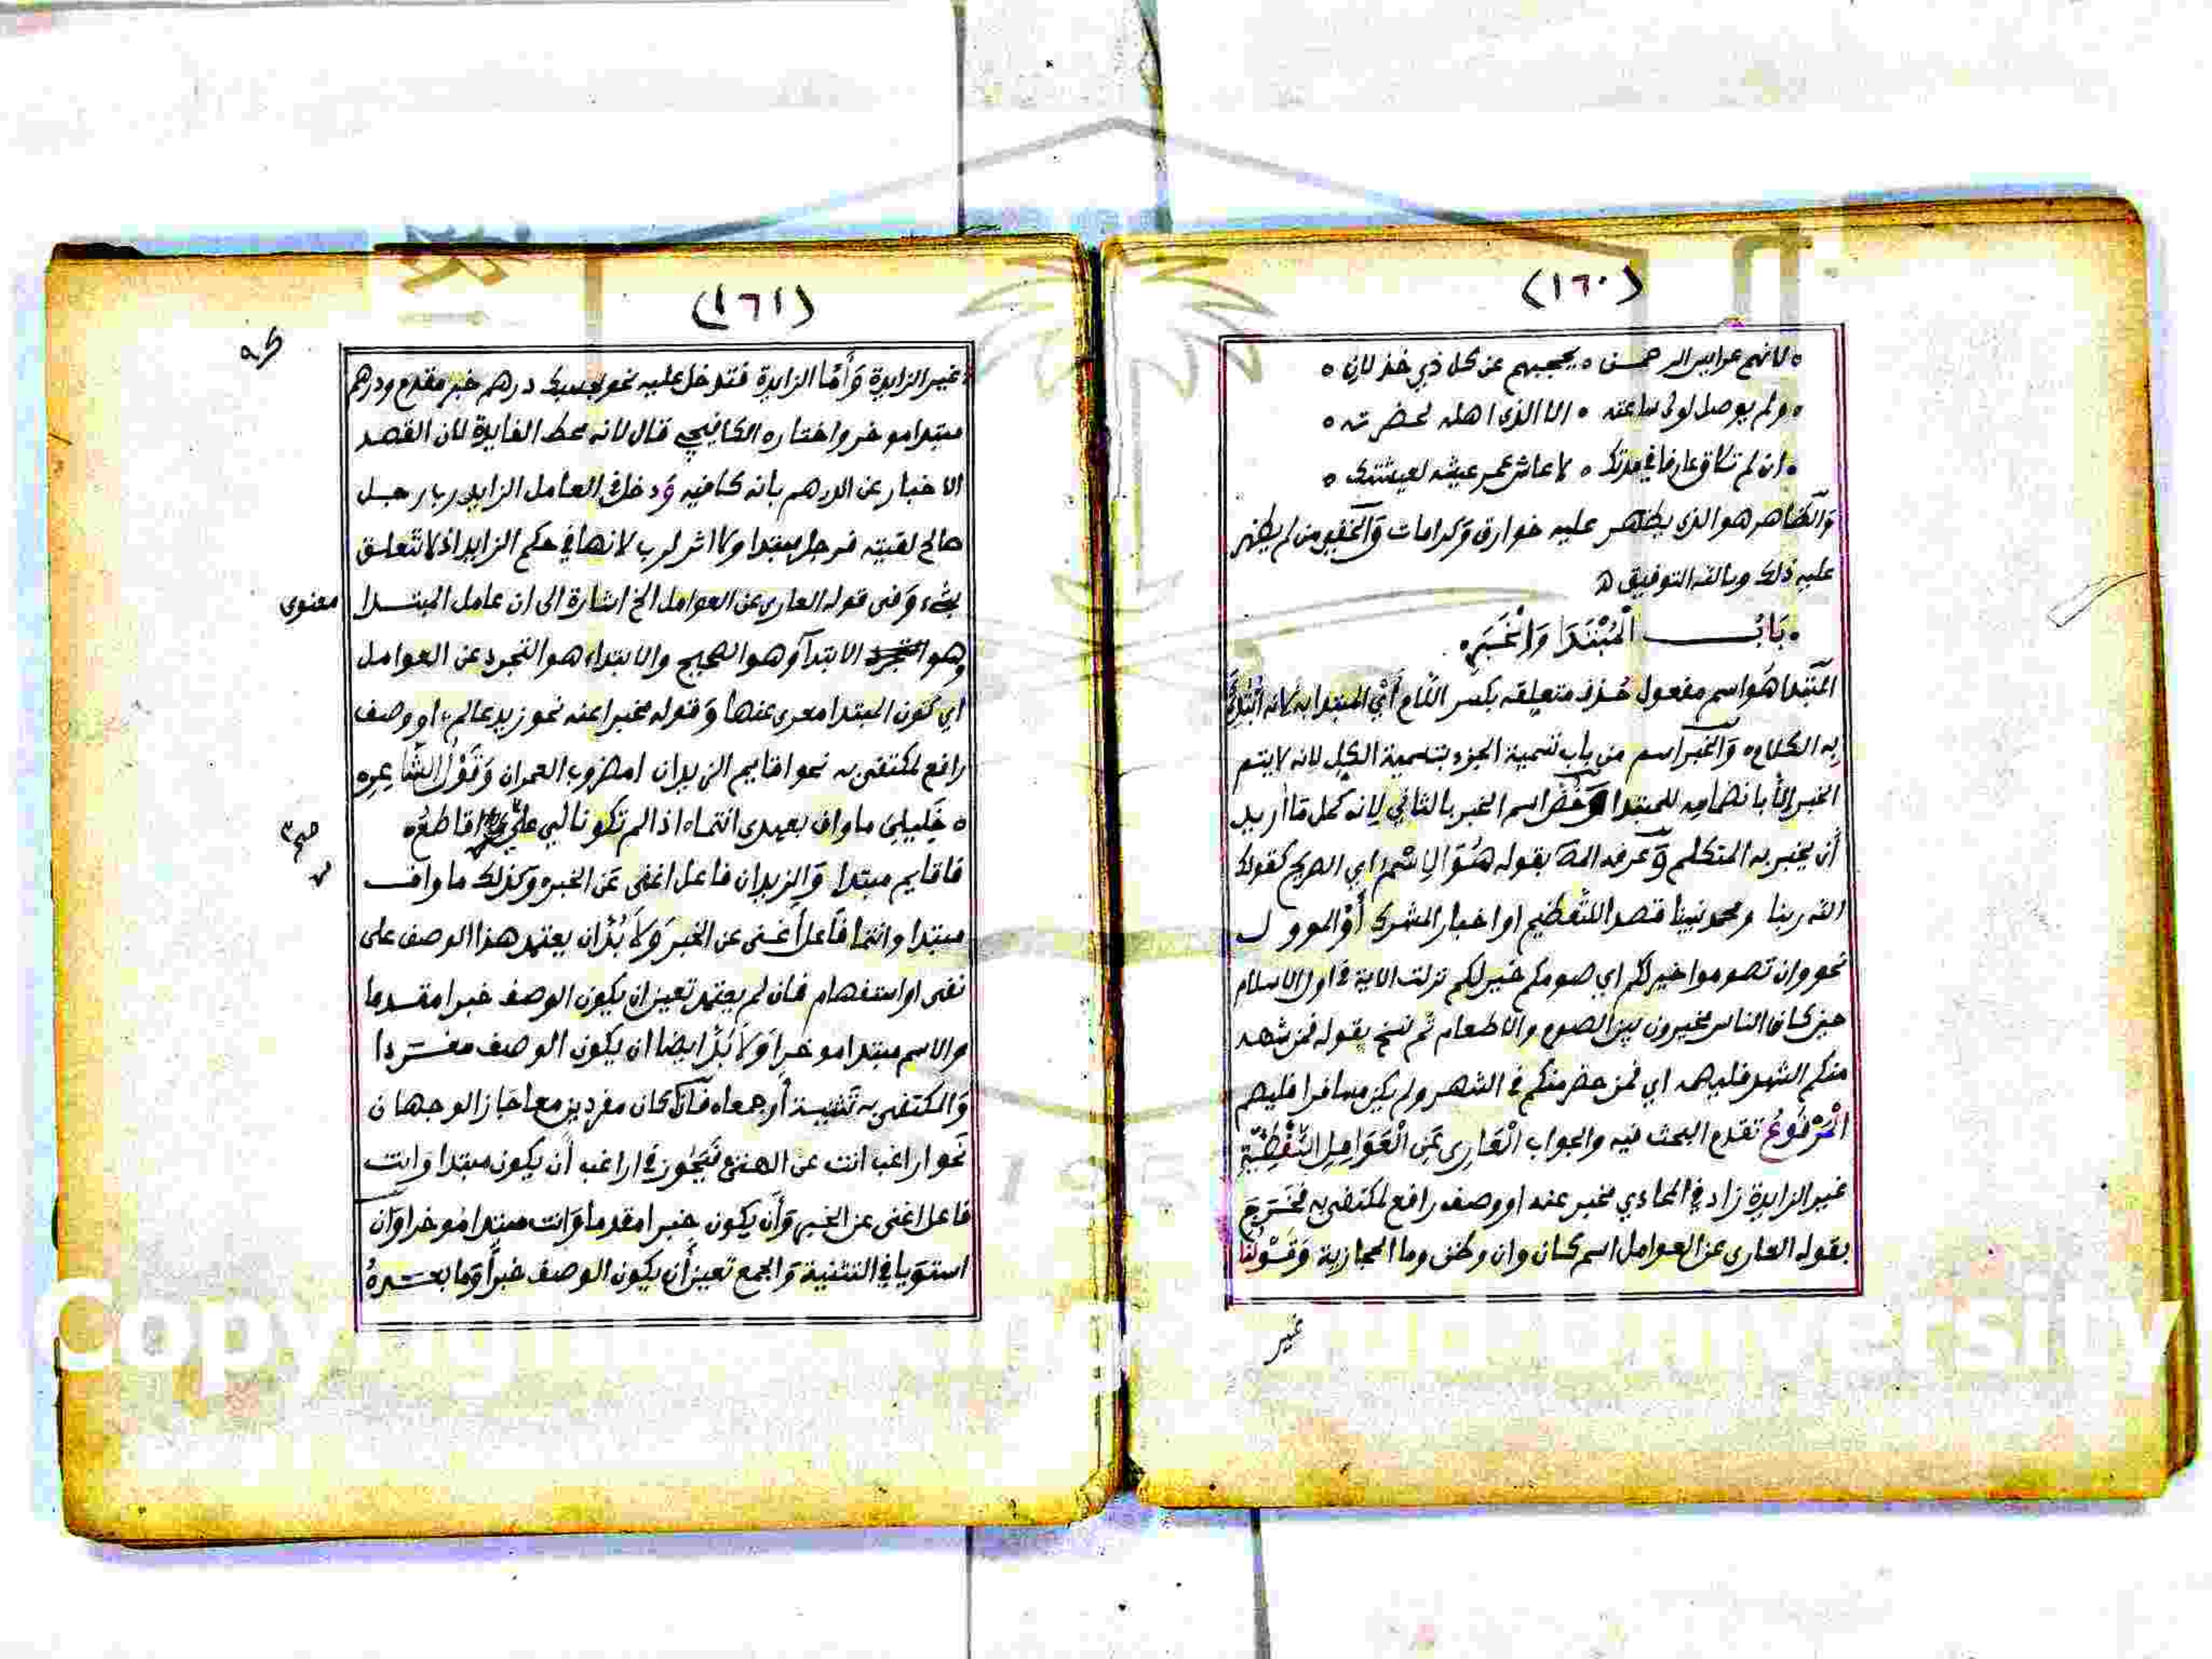 (١٦٠)
لانهم عرايس الرحمن ه يحجبهم عن كل ذي خذلان ه
ولم يوصل لولي ساعته ه الا الذي اهله لحضرته ه
ان لم تلاق عارفا في مدتك ه لا عاش عمر عيشه لعيشتك ه
والظاهر هو الذي يظهر عليه خوارق وكرامات والخفي من لم يظهر
عليه ذلك وبالله التوفيق ه
باب المبتدا والخبر
المبتدا هو اسم مفعول حذف متعلقه بكسر اللام أي المبتدا به لانه ابتدئ
به الكلام والخبر اسم من باب تسمية الجزء بتسمية الكل لانه لا يتم
الخبر الا بانضمامه للمبتدا وخص اسم الخبر بالثاني لانه كمل ما أريد
أن يخبر به المتكلم وعرفه المص بقوله هو الاسم اي الصريح كقولك
الله ربنا ومحمد نبينا قصدا للتعظيم او اخبار المشرك أو الموول
نحو وان تصوموا خير لكم اي صومكم خير لكم نزلت الاية في اول الاسلام
حين كان الناس مخيرون بين الصوم والاطعام ثم نسخ بقوله فمن شهد
منكم الشهر فليصمه اي فمن حضر منكم في الشهر ولم يكن مسافرا فليصم
المرفوع تقدم البحث فيه والجواب العاري عن العوامل اللفظية
غير الزايدة زاد في الحاوي مخبر عنه او وصف رافع لمكتفى به فخرج
بقوله العاري عن العوامل اسم كان وان وظن وما الحجازية وقولنا
غير
(١٦١)
غير الزايدة وأما الزايدة فتدخل عليه نحو بحسبك درهم خبر مقدم ودرهم
مبتدا موخر واختاره الكافيجي قال لانه محط الفايدة لان القصد
الاخبار عن الدرهم بانه كافيه ودخل العامل الزايد رب رجل
صالح لقيته فرجل مبتدا ولا اثر لرب لانها في حكم الزايد اذ لا تتعلق
بشيء وفي قوله العاري عن العوامل الخ اشارة الى ان عامل المبتدا معنوي
وهو الابتدآ وهو الصحيح والابتداء هو التجرد عن العوامل
اي كون المبتدا معرى عنها وقوله مخبرا عنه نحو زيد عالم او وصف
رافع لمكتفى به نحو اقايم الزيدان امضروب العمران وقول الشاعر ه
ه خليلي ما واف بعهدي انتما ه اذا لم تكونا لي على من اقاطع ه
فاقايم مبتدا والزيدان فاعل اغنى عن الخبر وكذلك ما واف
مبتدا وانتما فاعل أغنى عن الخبر ولا بد ان يعتمد هذا الوصف على
نفى او استفهام فان لم يعتمد تعين ان يكون الوصف خبرا مقدما
والاسم مبتدا موخرا ولا بد ايضا ان يكون الوصف مفردا
والمكتفى به تثنية أو جمعا فان كان مفردين معا جاز الوجهان
نحو اراغب انت عن الهتي فيجوز في اراغب أن يكون مبتدا وانت
فاعل اغنى عن الخبر وأن يكون خبرا مقدما وانت مبتدا موخرا وان
استويا في التثنية والجمع تعين أن يكون الوصف خبرا وما بعده